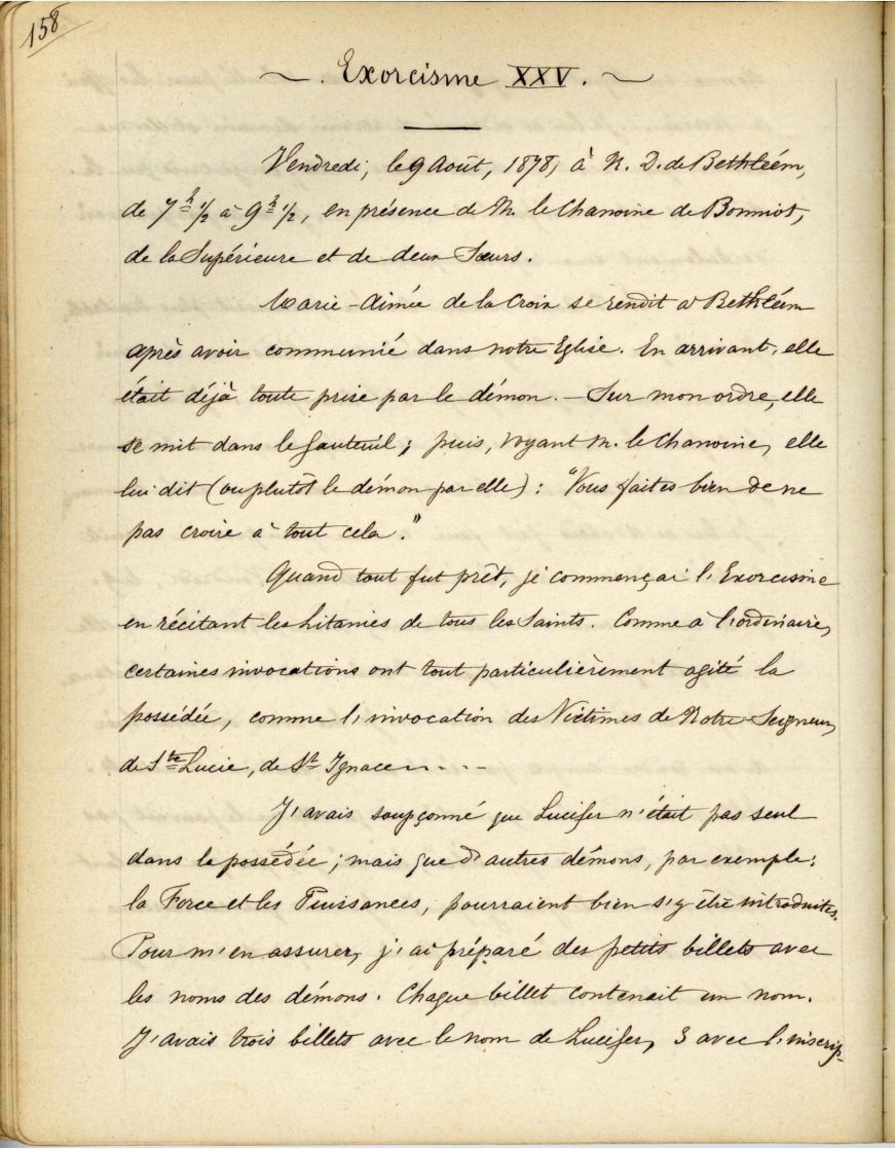 158
~ . Exorcisme XXV. ~
Vendredi, le 9 Août, 1878, à N. D. de Bethléém,
de 7 h ½ à 9 h ½, en présence de M. le Chanoine de Bonniot,
de la Supérieure et de deux Sœurs.
Marie-Aimée de la Croix se rendit à Bethléém
après avoir communié dans notre Eglise. En arrivant, elle
était déjà toute prise par le démon. – Sur mon ordre, elle
se mit dans le fauteuil ; puis, voyant M. le Chanoine, elle
lui dit (ou plutôt le démon par elle) : "Vous faites bien de ne
pas croire à tout cela."
Quand tout fut prêt, je commençai l'Exorcisme
en récitant les Litanies de tous les Saints. Comme à l'ordinaire,
certaines invocations ont tout particulièrement agité la
possédée, comme l'invocation des Victimes de Notre-Seigneur,
de Ste Lucie, de St Ignace - - - -
J'avais soupçonné que Lucifer n'était pas seul
dans la possédée ; mais que d'autres démons, par exemple :
la Force et les Puissances, pourraient bien s'y être introduites.
Pour m'en assurer, j'ai préparé des petits billets avec
les noms des démons. Chaque billet contenait un nom.
J'avais trois billets avec le nom de Lucifer, 3 avec l'inscrip-